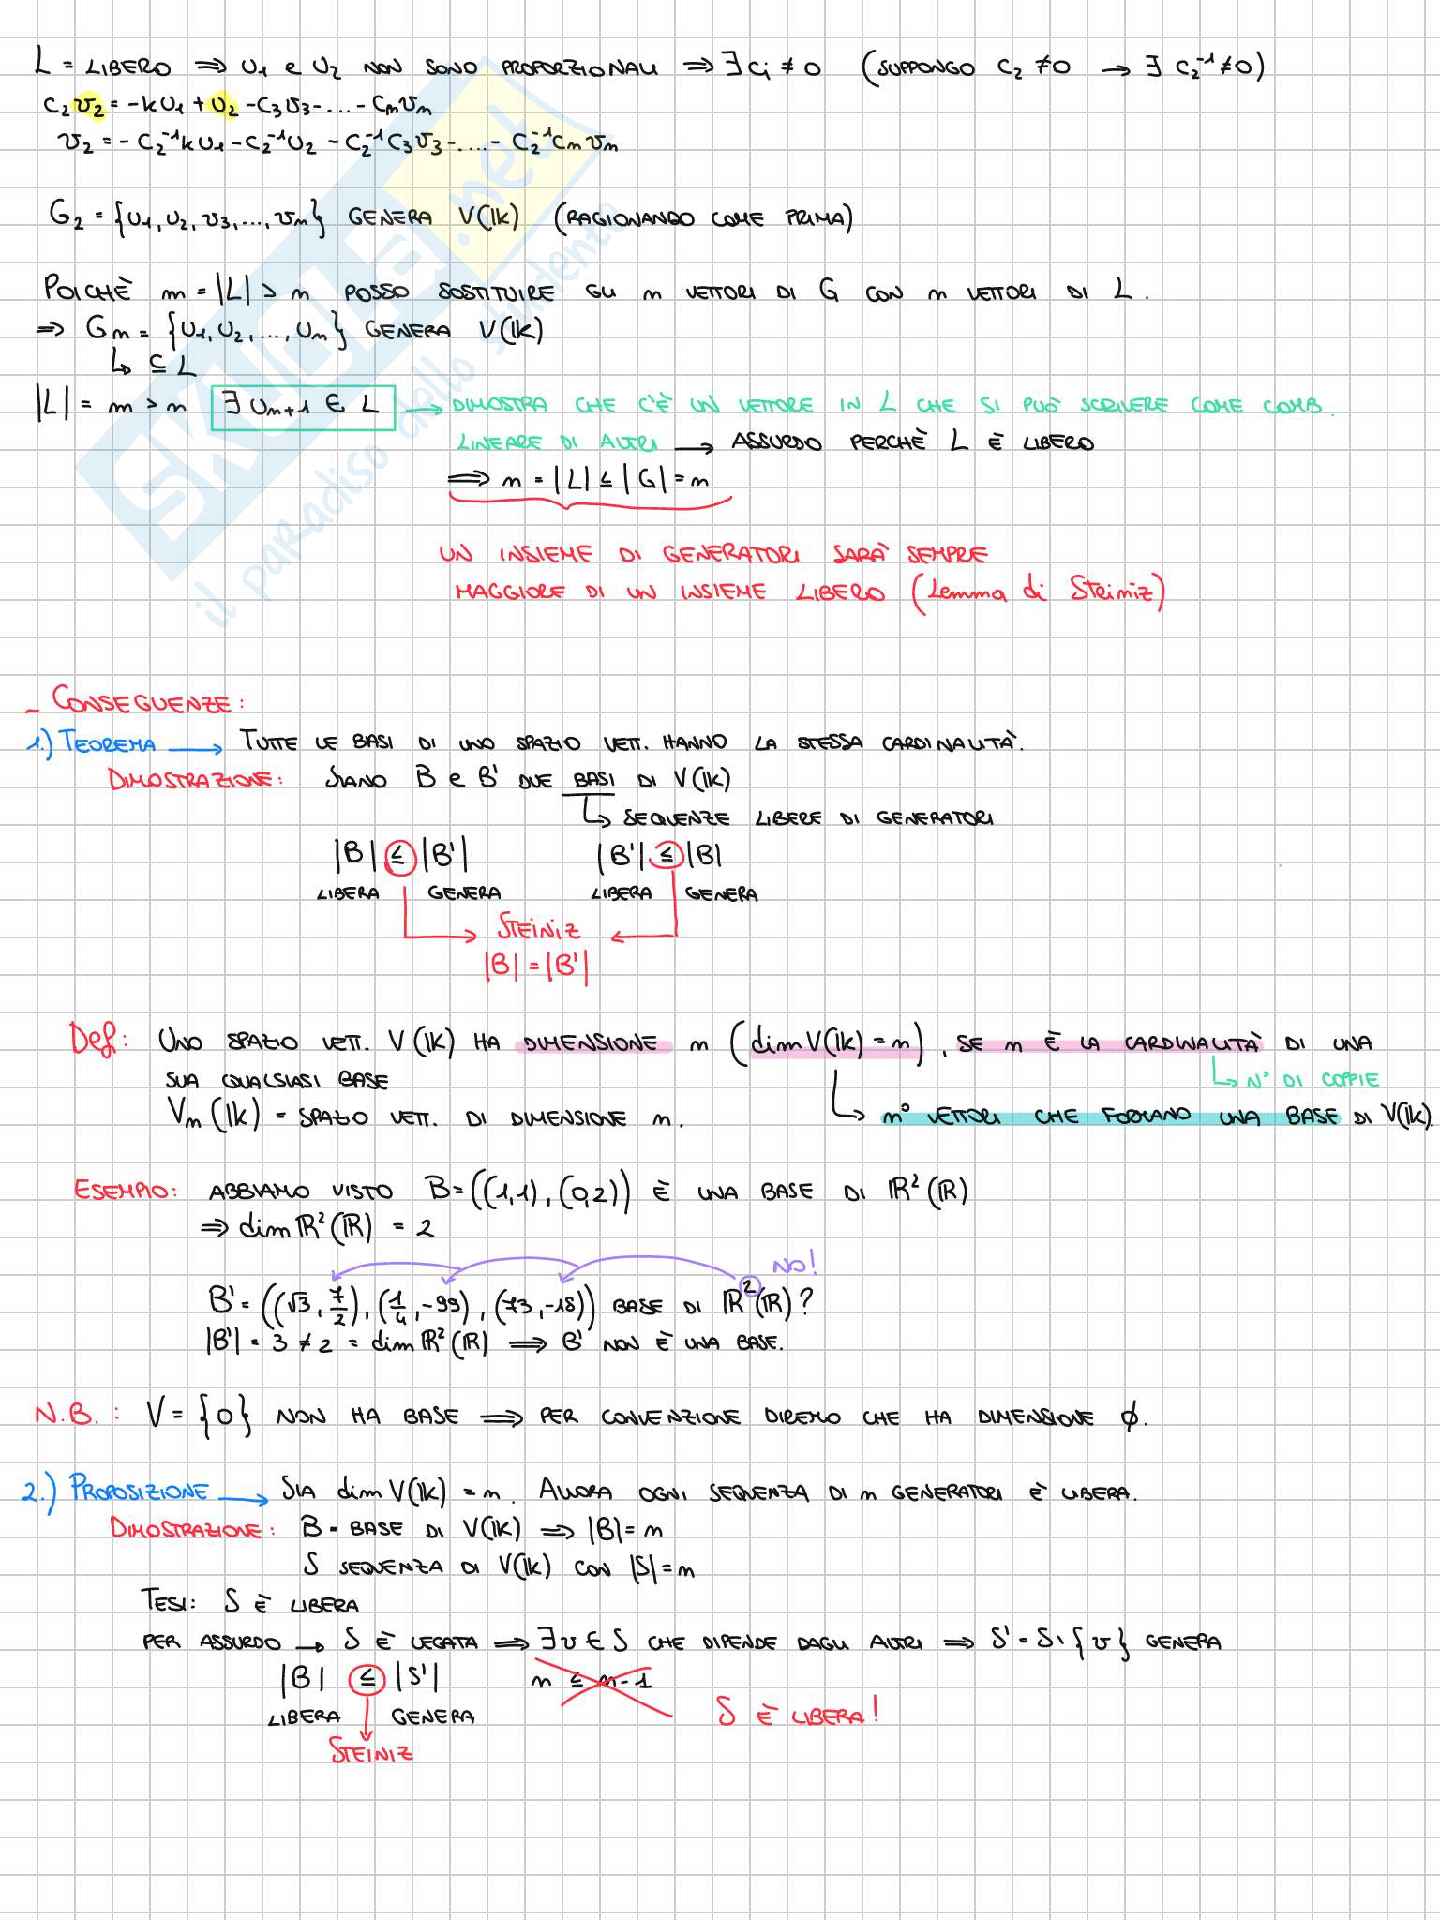 L = LIBERO ⇒ U1 e U2 NON SONO PROPORZIONALI ⇒ ∃ Ci ≠ 0 (SUPPONGO C2 ≠ 0 → ∃ C2⁻¹ ≠ 0)
C2 v2 = -kU1 + U2 - C3v3 - .... - Cnvn
v2 = - C2⁻¹kU1 - C2⁻¹U2 - C2⁻¹C3v3 - .... - C2⁻¹Cnvn
G2 = {U1, U2, v3, ..., vn} GENERA V(K) (RAGIONANDO COME PRIMA)
POICHÈ m = |L| > n POSSO SOSTITUIRE GLI n VETTORI DI G CON n VETTORI DI L.
⇒ Gn = {U1, U2, ..., Un} GENERA V(K)
↳ ⊆ L
|L| = m > n ∃ Un+1 ∈ L → DIMOSTRA CHE C'È UN VETTORE IN L CHE SI PUÒ SCRIVERE COME COMB.
LINEARE DI ALTRI → ASSURDO PERCHÈ L È LIBERO
⇒ m = |L| ≤ |G| = n
UN INSIEME DI GENERATORI SARÀ SEMPRE
MAGGIORE DI UN INSIEME LIBERO (Lemma di Steiniz)
SKUOLA.net
il paradiso dello studente
- CONSEGUENZE:
1.) TEOREMA → TUTTE LE BASI DI UNO SPAZIO VETT. HANNO LA STESSA CARDINALITÀ.
DIMOSTRAZIONE: SIANO B e B' DUE BASI DI V(K)
↳ SEQUENZE LIBERE DI GENERATORI
|B| ≤ |B'| |B'| ≤ |B|
LIBERA GENERA LIBERA GENERA
STEINIZ
|B| = |B'|
Def: UNO SPAZIO VETT. V(K) HA DIMENSIONE n (dim V(K) = n), SE n È LA CARDINALITÀ DI UNA
SUA QUALSIASI BASE ↳ N° DI COPPIE
Vn(K) = SPAZIO VETT. DI DIMENSIONE n. ↳ n° VETTORI CHE FORMANO UNA BASE DI V(K)
ESEMPIO: ABBIAMO VISTO B = ((1,1), (0,2)) È UNA BASE DI ℝ²(ℝ)
⇒ dim ℝ²(ℝ) = 2
NO!
B' = ((√3, 7/2), (1/4, -99), (73, -18)) BASE DI ℝ²(ℝ)?
|B'| = 3 ≠ 2 = dim ℝ²(ℝ) ⇒ B' NON È UNA BASE.
N.B.: V = {0} NON HA BASE ⇒ PER CONVENZIONE DIREMO CHE HA DIMENSIONE ϕ.
2.) PROPOSIZIONE → SIA dim V(K) = n. ALLORA OGNI SEQUENZA DI n GENERATORI È LIBERA.
DIMOSTRAZIONE: B = BASE DI V(K) ⇒ |B| = n
S SEQUENZA DI V(K) CON |S| = n
TESI: S È LIBERA
PER ASSURDO → S È LEGATA ⇒ ∃ v ∈ S CHE DIPENDE DAGLI ALTRI ⇒ S' = S \ {v} GENERA
|B| ≤ |S'| n ≤ n - 1
LIBERA GENERA S È LIBERA!
STEINIZ